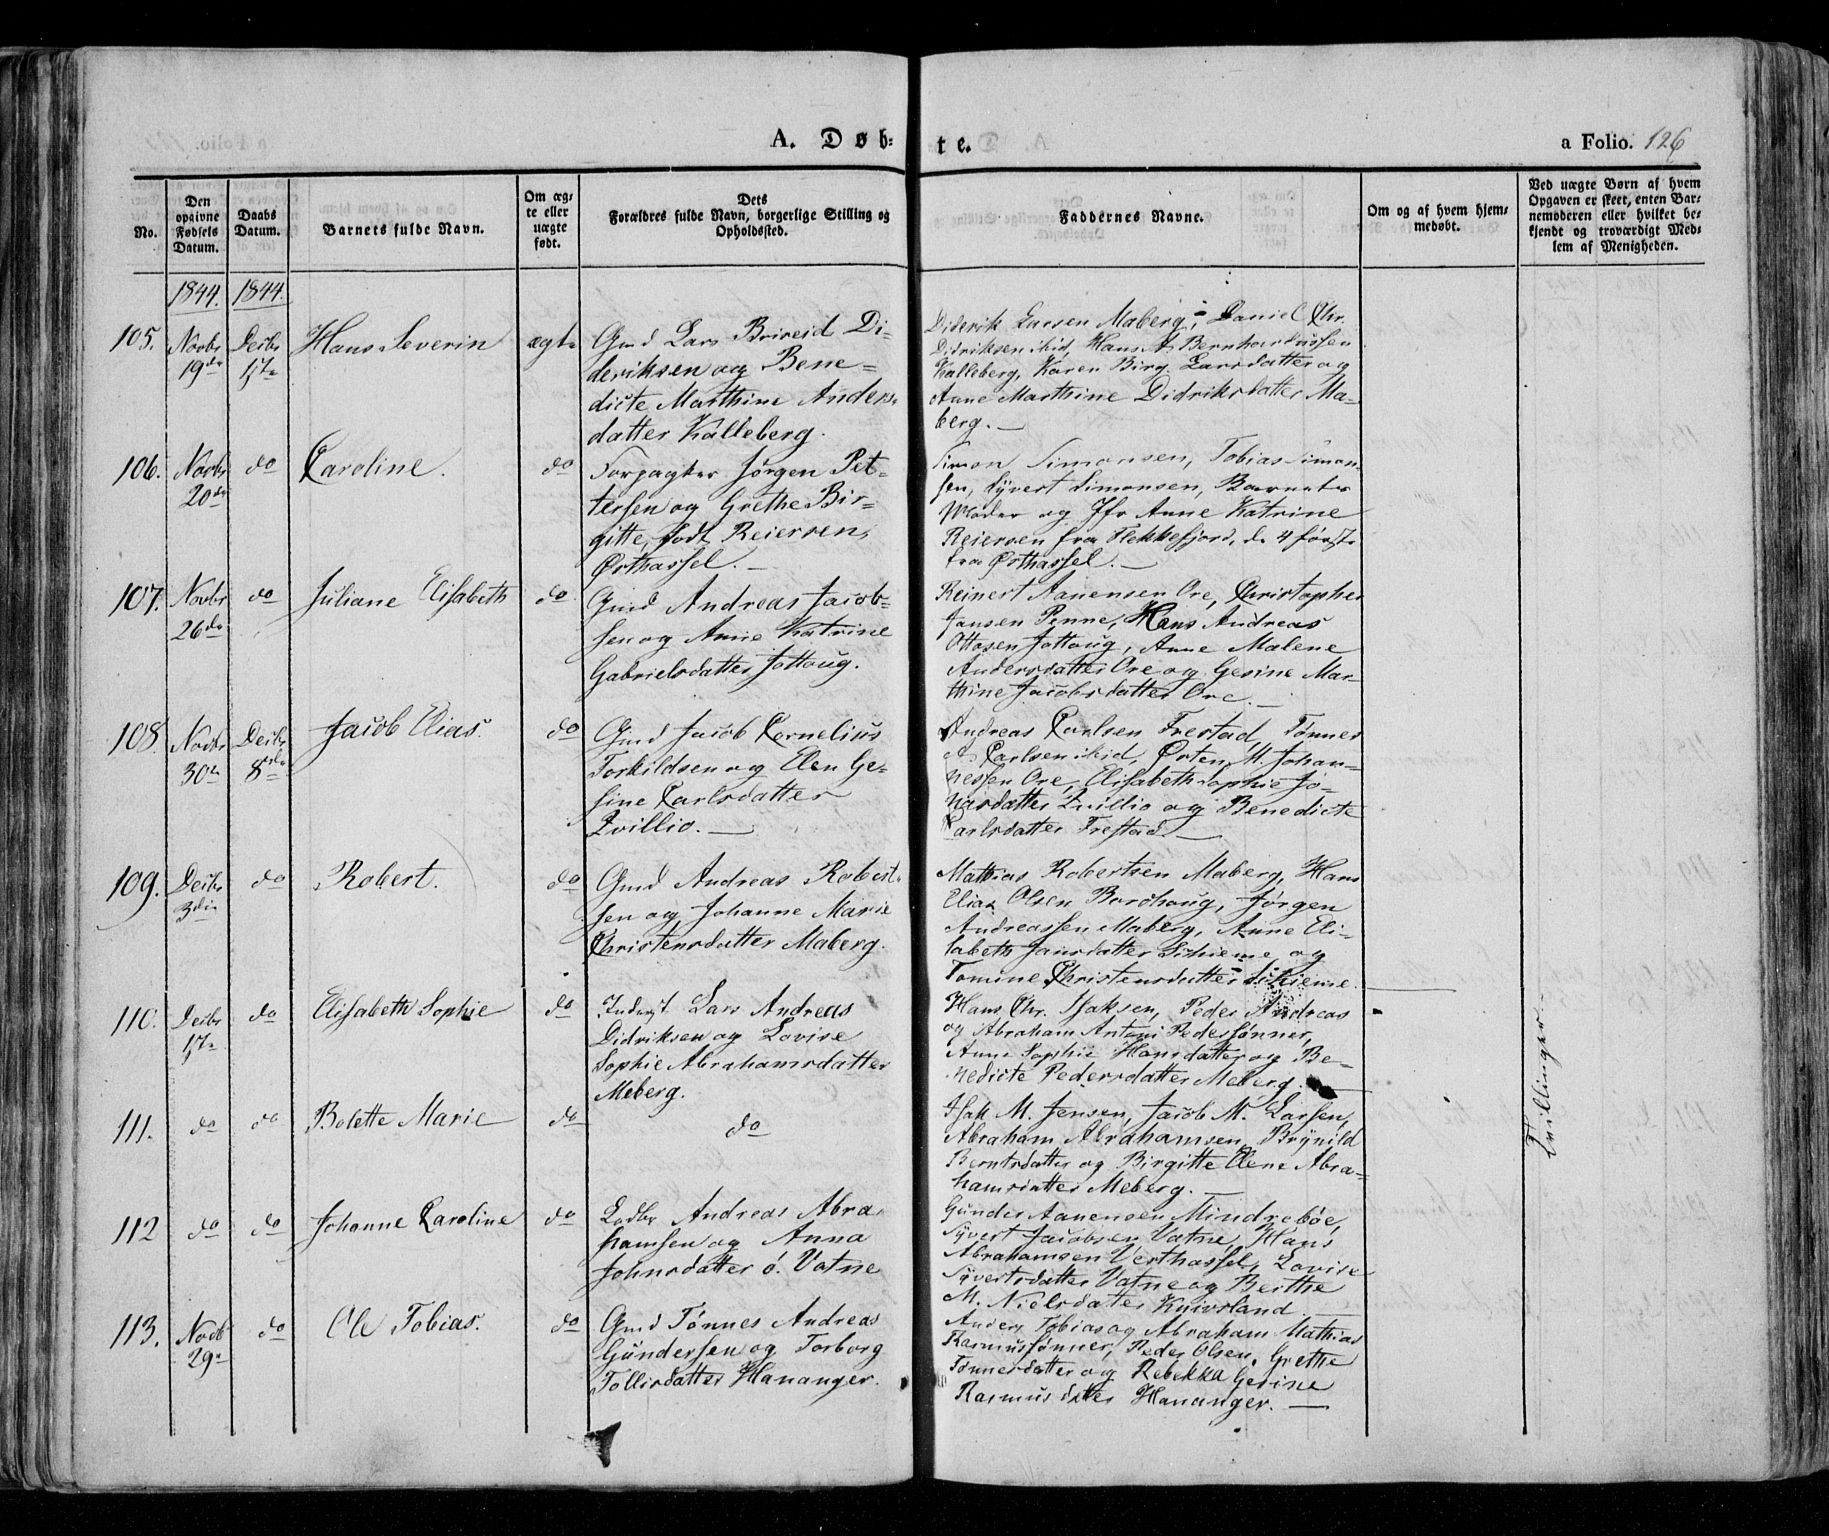 A. Døb-te.
a Folio. 126
No.
Den opgivne Fødsels Datum.
Daabs Datum.
Barnets fulde Navn.
Om ægte eller uægte født.
Dets Forældres fulde Navn, borgerlige Stilling og Opholdssted.
Faddernes Navne.
Om og af hvem hjemmedøbt.
Ved uægte Børn af hvem Opgaven er skeet, enten Barnemoderen eller hvilket bekjendt og troværdigt Medlem af Menigheden.
1844. 1844.
105. Novbr 19de Decbr 17de Hans Severin ægte
Gmd Lars Brireid Di-
deriksen og Bene-
dicte Marthine Anders-
datter Kalleberg.
Diderik Larsen Maberg, Daniel Chr.
Didriksen ibid, Hans A Bernhardussen
Kalleberg, Karen Birg. Larsdatter og
Anne Marthine Didriksdatter Ma-
berg. —
106. Novbr 20de do Caroline. do
Forpagter Jørgen Pet-
tersen og Grethe Bir-
gitte, født Reiersen,
Østhassel. —
Simon Simonsen, Tobias Simon-
sen, Syvert Simonsen, Barnets
Moder og Jfr Anne Katrine
Reiersen fra Flekkefjord, de 4 første
fra Østhassel. —
107. Novbr 26de do Juliane Elisabeth do
Gmd Andreas Jacob-
sen og Anne Katrine
Gabrielsdatter Jøttoug.
Reinert Aanensen Ore, Christopher
Jansen Penne, Hans Andreas
Ottosen Jøttoug, Anne Malene
Andersdatter Ore og Gesine Mar-
thine Jacobsdatter Ore. —
108. Novbr 30te Decbr 8de Jacob Elias. do
Gmd Jacob Cornelius
Torkildsen og Elen Ge-
sine Carlsdatter
Qvillio. —
Andreas Carlsen Frestad, Tønnes
A. Carlsen ibid, Ørten M. Johan-
nessen Ore, Elisabeth Sophie Jo-
nasdatter Qvillio og Benedicte
Carlsdatter Frestad. —
109. Decbr 3die do Robert. do
Gmd Andreas Robert-
sen og Johanne Marie
Christensdatter Maberg.
Mathias Robertsen Maberg, Hans
Elias Olsen Bordhoug, Jørgen
Andreassen Maberg, Anne Eli-
sabeth Jansdatter Schieme og
Tomine Christensdatter Schieme.
110. Decbr 17de do Elisabeth Sophie do
Inderst Lars Andreas
Didriksen og Lovise
Sophie Abrahamsdatter
Meberg.
Hans Chr. Isaksen, Peder Andreas
og Abraham Antoni Pedersønner,
Anne Sophie Hansdatter og Be-
nedicte Pedersdatter Meberg.
111. do do Bolette Marie do
do
Isak M. Jensen, Jacob M. Larsen,
Abraham Abrahamsen, Brynild
Berntsdatter og Birgitte Elene Abra-
hamsdatter Meberg. —
Tvillinger.
112 do do Johanne Caroline do
Andreas Abra-
hamsen og Anna
Johnsdatter ø. Vatne
Gunder Aanensen Mindrebøe,
Syvert Jacobsen Vatne, Hans
Abrahamsen Vesthassel, Lovise
Syvertsdatter Vatne og Berthe
M. Nielsdatter Knivsland. —
113. Novb 29de do Ole Tobias. do
Gmd Tønnes Andreas
Gundersen og Torborg
Tollisdatter Hananger.
Anders Tobias og Abraham Mathias
Rasmussønner, Peder Olsen, Grethe
Tønnesdatter og Rebekka Gesine
Rasmusdatter Hananger. —